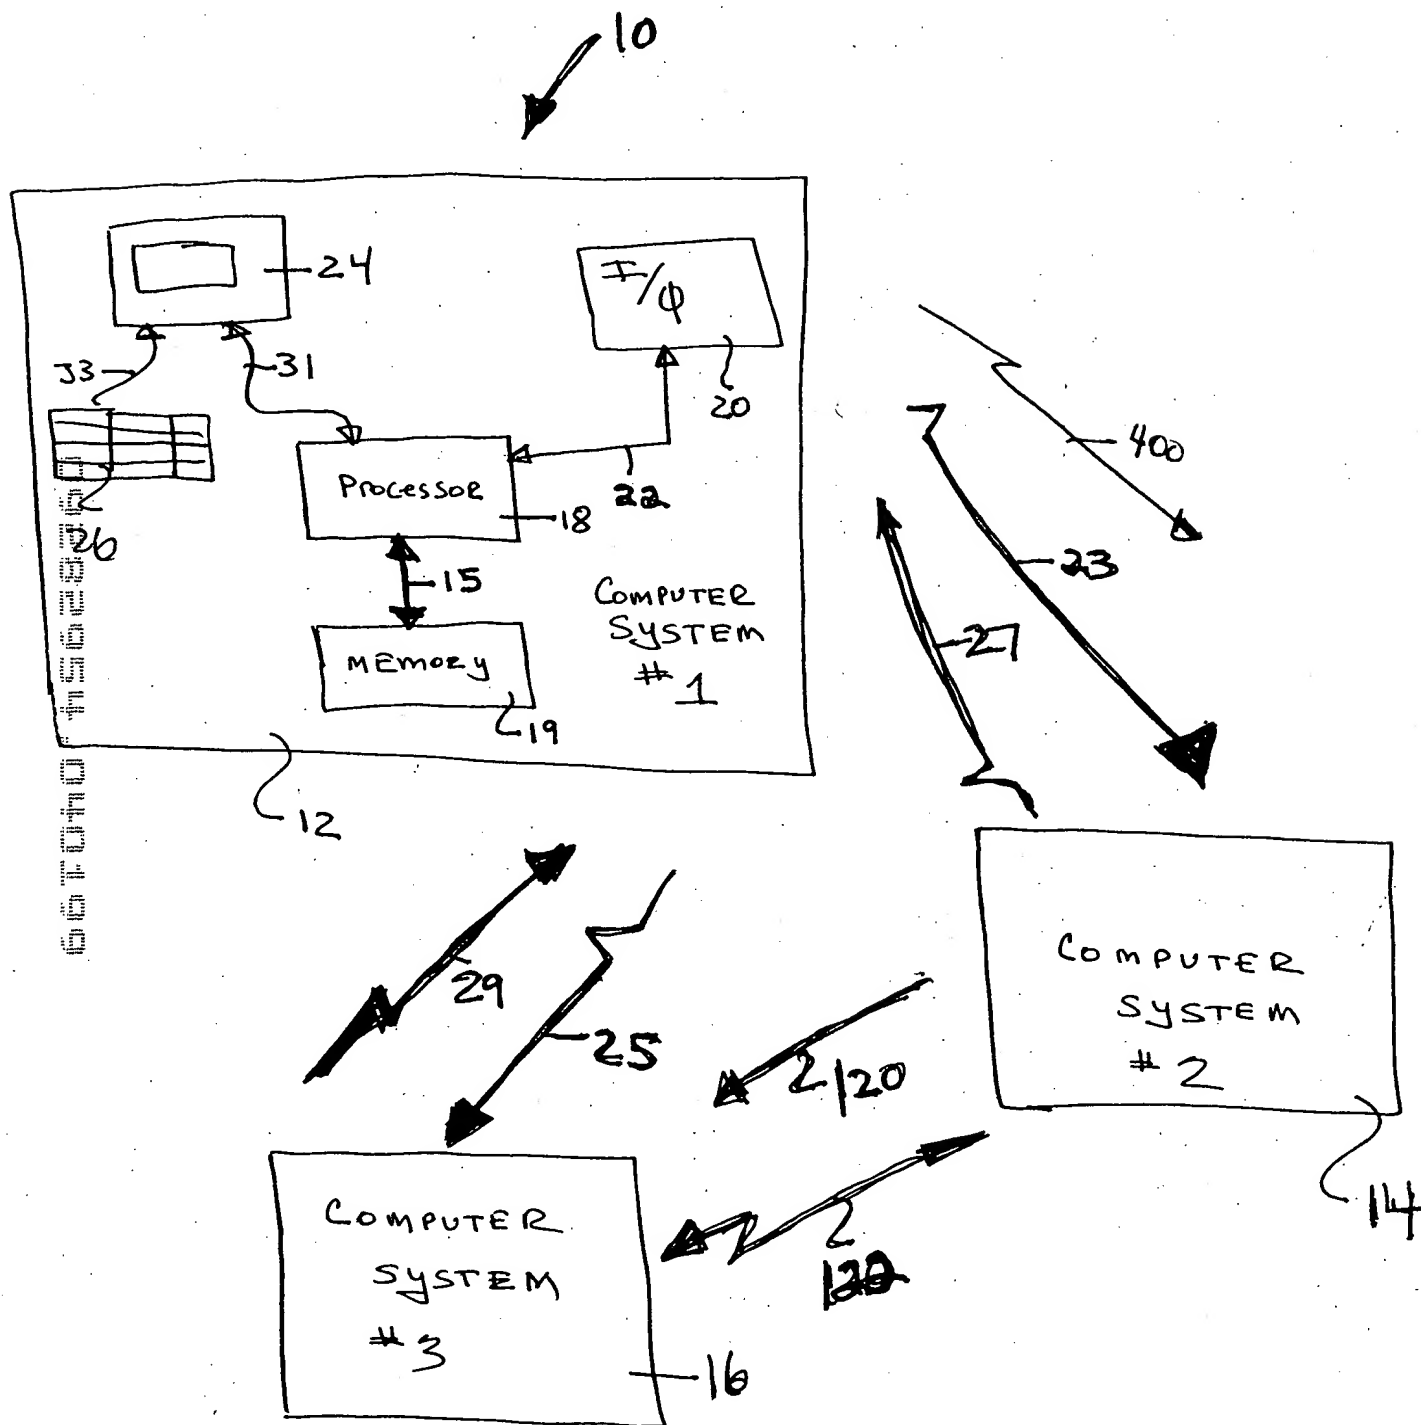 10
24
I/O
33
31
20
400
Processor
22
26
18
23
15
COMPUTER
SYSTEM
# 1
27
MEMORY
19
12
29
25
COMPUTER
SYSTEM
# 2
120
14
COMPUTER
SYSTEM
# 3
16